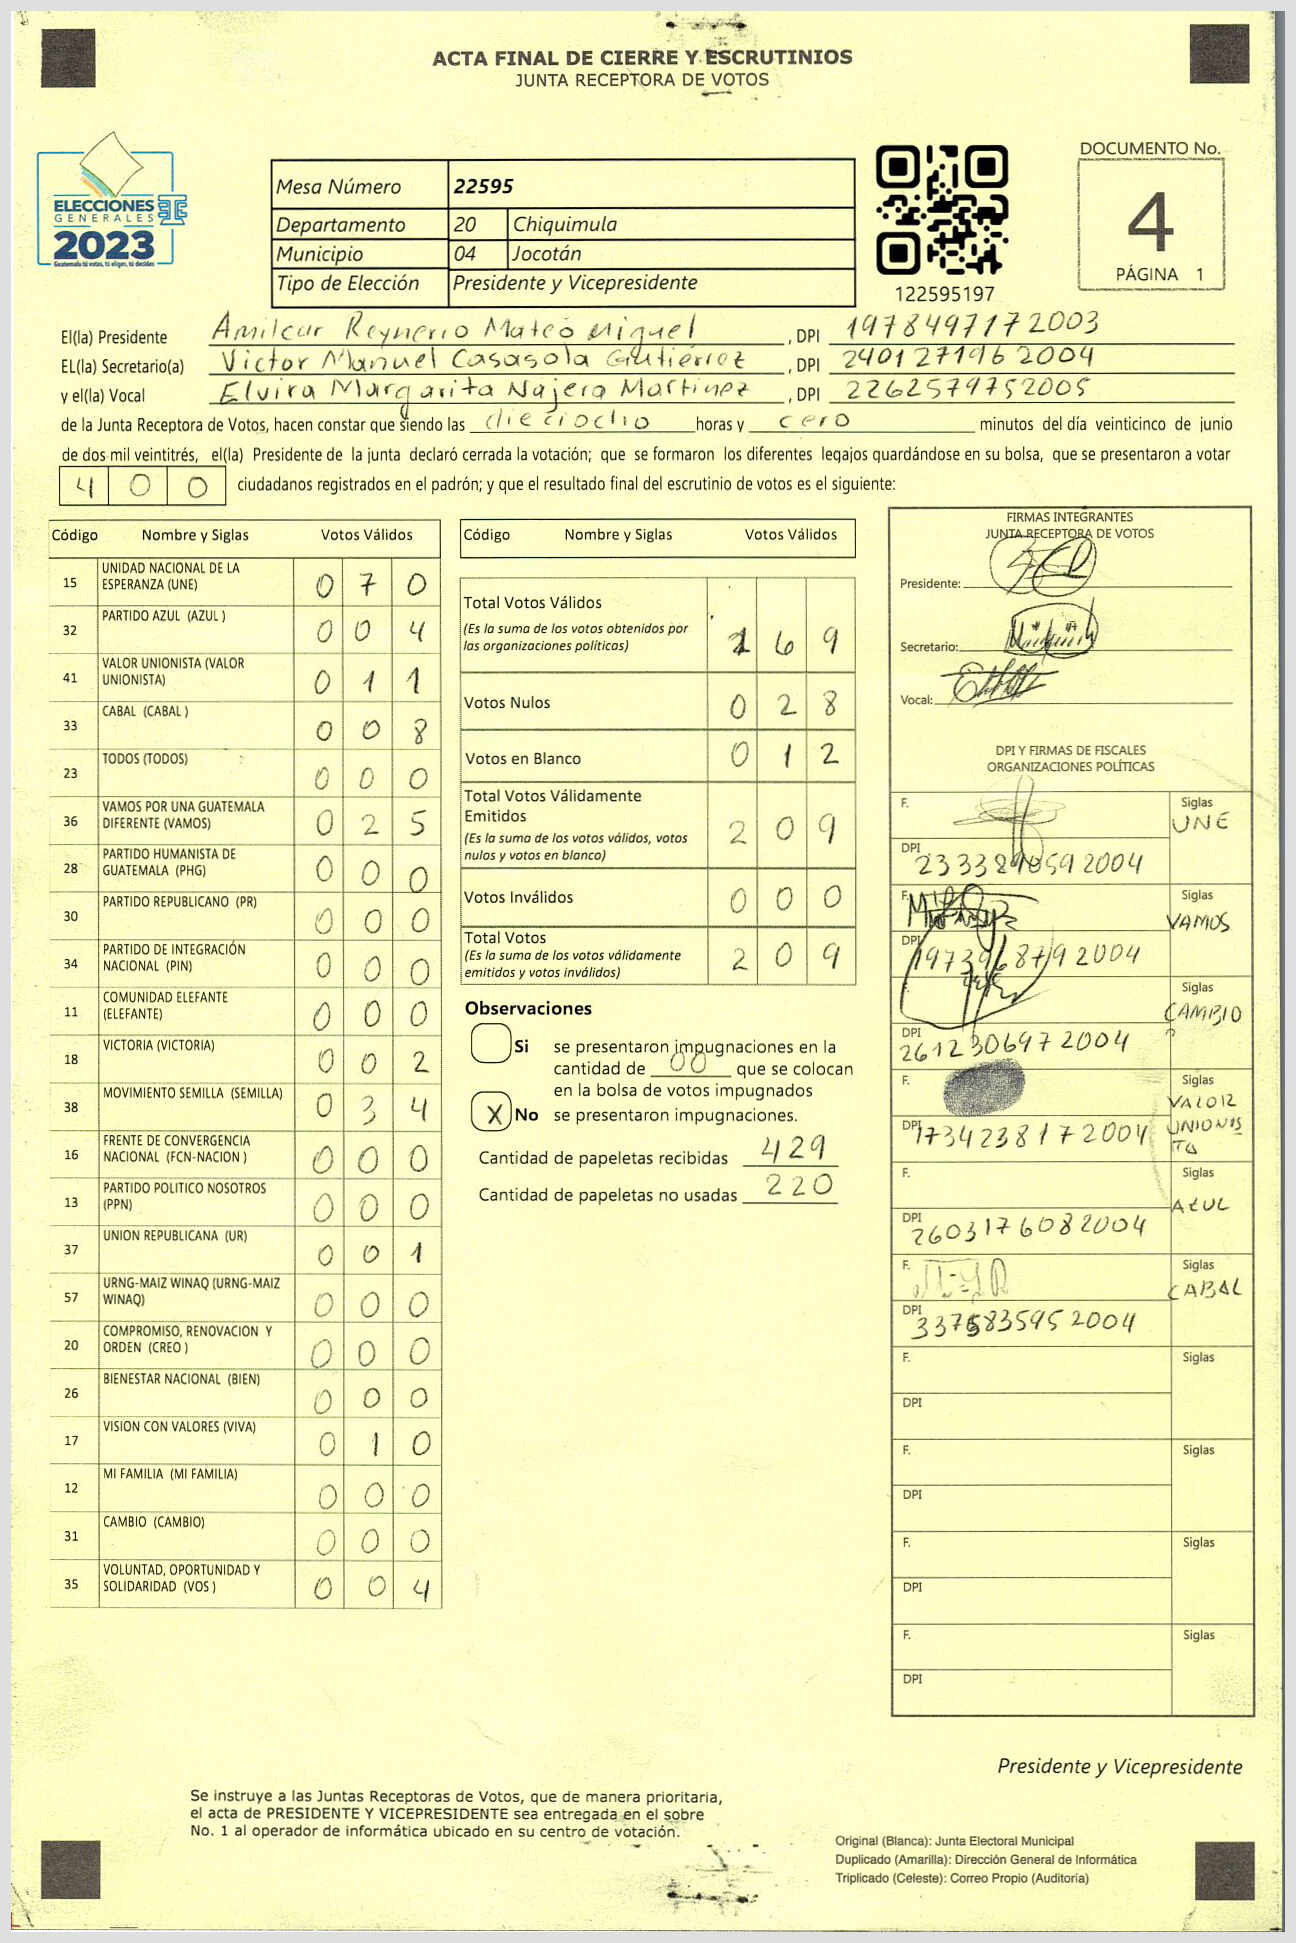 ACTA FINAL DE CIERRE Y ESCRUTINIOS
JUNTA RECEPTORA DE VOTOS
ELECCIONES
GENERALES
2023
Guatemala tú votas, tú eliges, tú decides
Mesa Número 22595
Departamento 20 Chiquimula
Municipio 04 Jocotán
Tipo de Elección Presidente y Vicepresidente
122595197
DOCUMENTO No.
4
PÁGINA 1
El(la) Presidente Amilcar Reynerio Mateo Miguel , DPI 1978497172003
EL(la) Secretario(a) Victor Manuel Casasola Gutiérrez , DPI 240127196 2004
y el(la) Vocal Elvira Margarita Najera Martinez , DPI 2262579752005
de la Junta Receptora de Votos, hacen constar que siendo las dieciocho horas y cero minutos del día veinticinco de junio
de dos mil veintitrés, el(la) Presidente de la junta declaró cerrada la votación; que se formaron los diferentes legajos guardándose en su bolsa, que se presentaron a votar
4 0 0 ciudadanos registrados en el padrón; y que el resultado final del escrutinio de votos es el siguiente:
Código Nombre y Siglas Votos Válidos
15 UNIDAD NACIONAL DE LA ESPERANZA (UNE) 0 7 0
32 PARTIDO AZUL (AZUL ) 0 0 4
41 VALOR UNIONISTA (VALOR UNIONISTA) 0 1 1
33 CABAL (CABAL ) 0 0 8
23 TODOS (TODOS) 0 0 0
36 VAMOS POR UNA GUATEMALA DIFERENTE (VAMOS) 0 2 5
28 PARTIDO HUMANISTA DE GUATEMALA (PHG) 0 0 0
30 PARTIDO REPUBLICANO (PR) 0 0 0
34 PARTIDO DE INTEGRACIÓN NACIONAL (PIN) 0 0 0
11 COMUNIDAD ELEFANTE (ELEFANTE) 0 0 0
18 VICTORIA (VICTORIA) 0 0 2
38 MOVIMIENTO SEMILLA (SEMILLA) 0 3 4
16 FRENTE DE CONVERGENCIA NACIONAL (FCN-NACION ) 0 0 0
13 PARTIDO POLITICO NOSOTROS (PPN) 0 0 0
37 UNION REPUBLICANA (UR) 0 0 1
57 URNG-MAIZ WINAQ (URNG-MAIZ WINAQ) 0 0 0
20 COMPROMISO, RENOVACION Y ORDEN (CREO ) 0 0 0
26 BIENESTAR NACIONAL (BIEN) 0 0 0
17 VISION CON VALORES (VIVA) 0 1 0
12 MI FAMILIA (MI FAMILIA) 0 0 0
31 CAMBIO (CAMBIO) 0 0 0
35 VOLUNTAD, OPORTUNIDAD Y SOLIDARIDAD (VOS ) 0 0 4
Código Nombre y Siglas Votos Válidos
Total Votos Válidos 1 6 9
(Es la suma de los votos obtenidos por
las organizaciones políticas)
Votos Nulos 0 2 8
Votos en Blanco 0 1 2
Total Votos Válidamente
Emitidos 2 0 9
(Es la suma de los votos válidos, votos
nulos y votos en blanco)
Votos Inválidos 0 0 0
Total Votos 2 0 9
(Es la suma de los votos válidamente
emitidos y votos inválidos)
Observaciones
Si se presentaron impugnaciones en la
cantidad de 00 que se colocan
en la bolsa de votos impugnados
X No se presentaron impugnaciones.
Cantidad de papeletas recibidas 429
Cantidad de papeletas no usadas 220
FIRMAS INTEGRANTES
JUNTA RECEPTORA DE VOTOS
Presidente:
Secretario:
Vocal:
DPI Y FIRMAS DE FISCALES
ORGANIZACIONES POLÍTICAS
F. Siglas UNE
DPI
F. Siglas VAMOS
DPI
Siglas CAMBIO
DPI 261230697 2004
F. Siglas VALOR UNIONISTA
DPI 173423817 2004
F. Siglas AZUL
DPI 260317608 2004
F. Siglas CABAL
DPI 337583595 2004
F. Siglas
DPI
F. Siglas
DPI
F. Siglas
DPI
F. Siglas
DPI
Presidente y Vicepresidente
Se instruye a las Juntas Receptoras de Votos, que de manera prioritaria,
el acta de PRESIDENTE Y VICEPRESIDENTE sea entregada en el sobre
No. 1 al operador de informática ubicado en su centro de votación.
Original (Blanca): Junta Electoral Municipal
Duplicado (Amarilla): Dirección General de Informática
Triplicado (Celeste): Correo Propio (Auditoría)